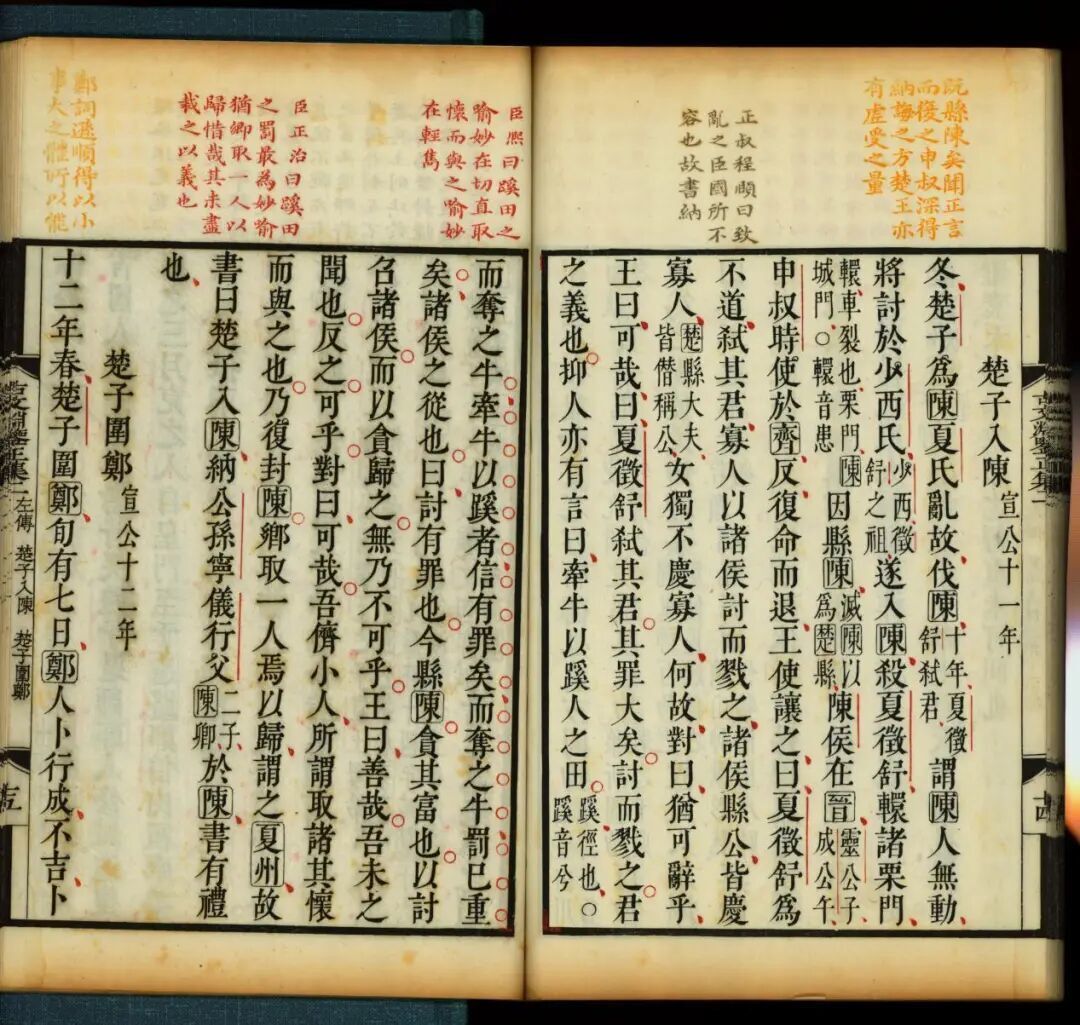 既縣陳矣聞正言
而復之申叔深得
納誨之方楚王亦
有虛受之量
正叔程頤曰致
亂之臣國所不
容也故書納
楚子入陳 宣公十一年
冬楚子爲陳夏氏亂故伐陳十年夏徵舒弒君謂陳人無動
將討於少西氏少西徵舒之祖遂入陳殺夏徵舒轘諸栗門
轘車裂也栗門陳城門○轘音患因縣陳滅陳以爲楚縣陳侯在晉靈公子成公午
申叔時使於齊反復命而退王使讓之曰夏徵舒爲
不道弒其君寡人以諸侯討而戮之諸侯縣公皆慶
寡人楚縣大夫皆僭稱公女獨不慶寡人何故對曰猶可辭乎
王曰可哉曰夏徵舒弒其君其罪大矣討而戮之君
之義也抑人亦有言曰牽牛以蹊人之田蹊徑也○蹊音兮
臣熙曰蹊田之
喻妙在切直取
懷而與之喻妙
在輕雋
臣正治曰蹊田
之罰最為妙喻
猶鄉取一人以
歸惜哉其未盡
載之以義也
鄭詞遜順得以小
事大之體所以能
而奪之牛牽牛以蹊者信有罪矣而奪之牛罰已重
矣諸侯之從也曰討有罪也今縣陳貪其富也以討
召諸侯而以貪歸之無乃不可乎王曰善哉吾未之
聞也反之可乎對曰可哉吾儕小人所謂取諸其懷
而與之也乃復封陳鄉取一人焉以歸謂之夏州故
書曰楚子入陳納公孫寧儀行父二子陳卿於陳書有禮
也
楚子圍鄭 宣公十二年
十二年春楚子圍鄭旬有七日鄭人卜行成不吉卜
左傳 楚子入陳 楚子圍鄭